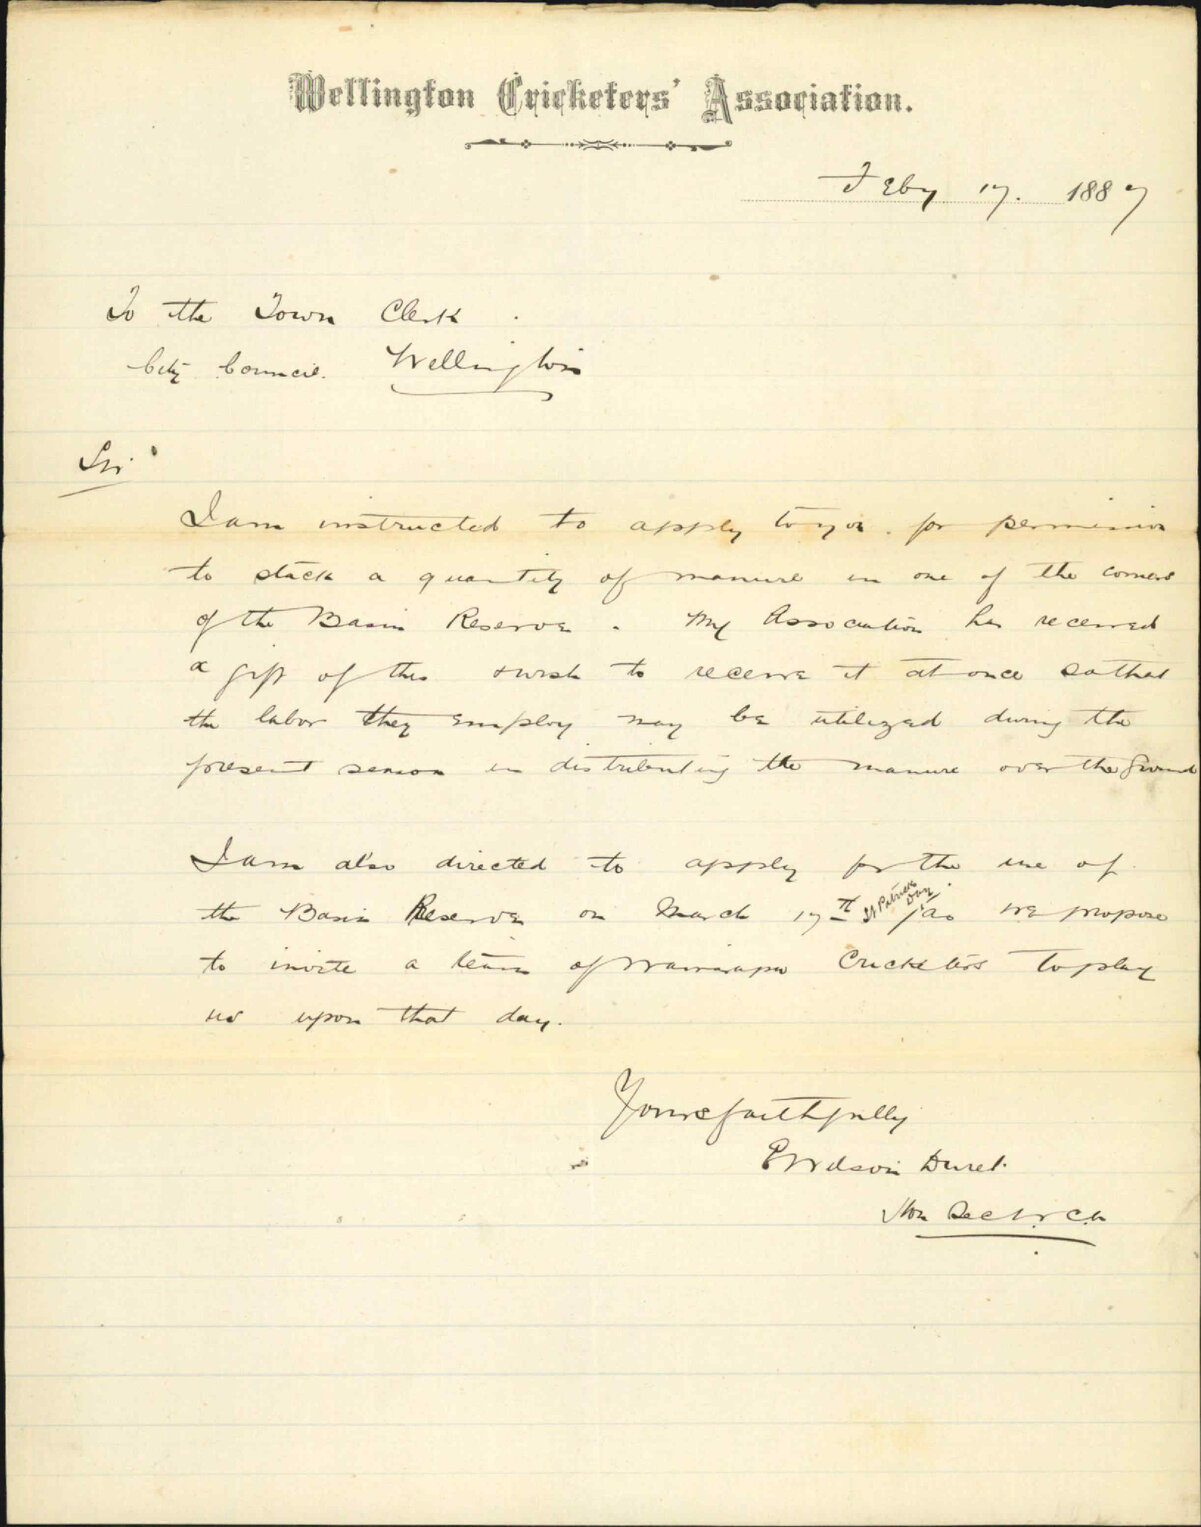 Wellington Cricketers' Association.
Feby 17. 1887
To the Town Clerk.
City Council. Wellington
Sir
I am instructed to apply to you. for permission
to stack a quantity of manure in one of the corners
of the Basin Reserve. My Association has received
a gift of this & wish to receive it at once so that
the labor they employ may be utilized during the
present season in distributing the manure over the ground
I am also directed to apply for the use of
the Basin Reserve on March 17th St Patricks Day as we propose
to invite a team of Wairarapa Cricketers to play
us upon that day.
Yours faithfully
Wilson
Hon Sec W.C.A